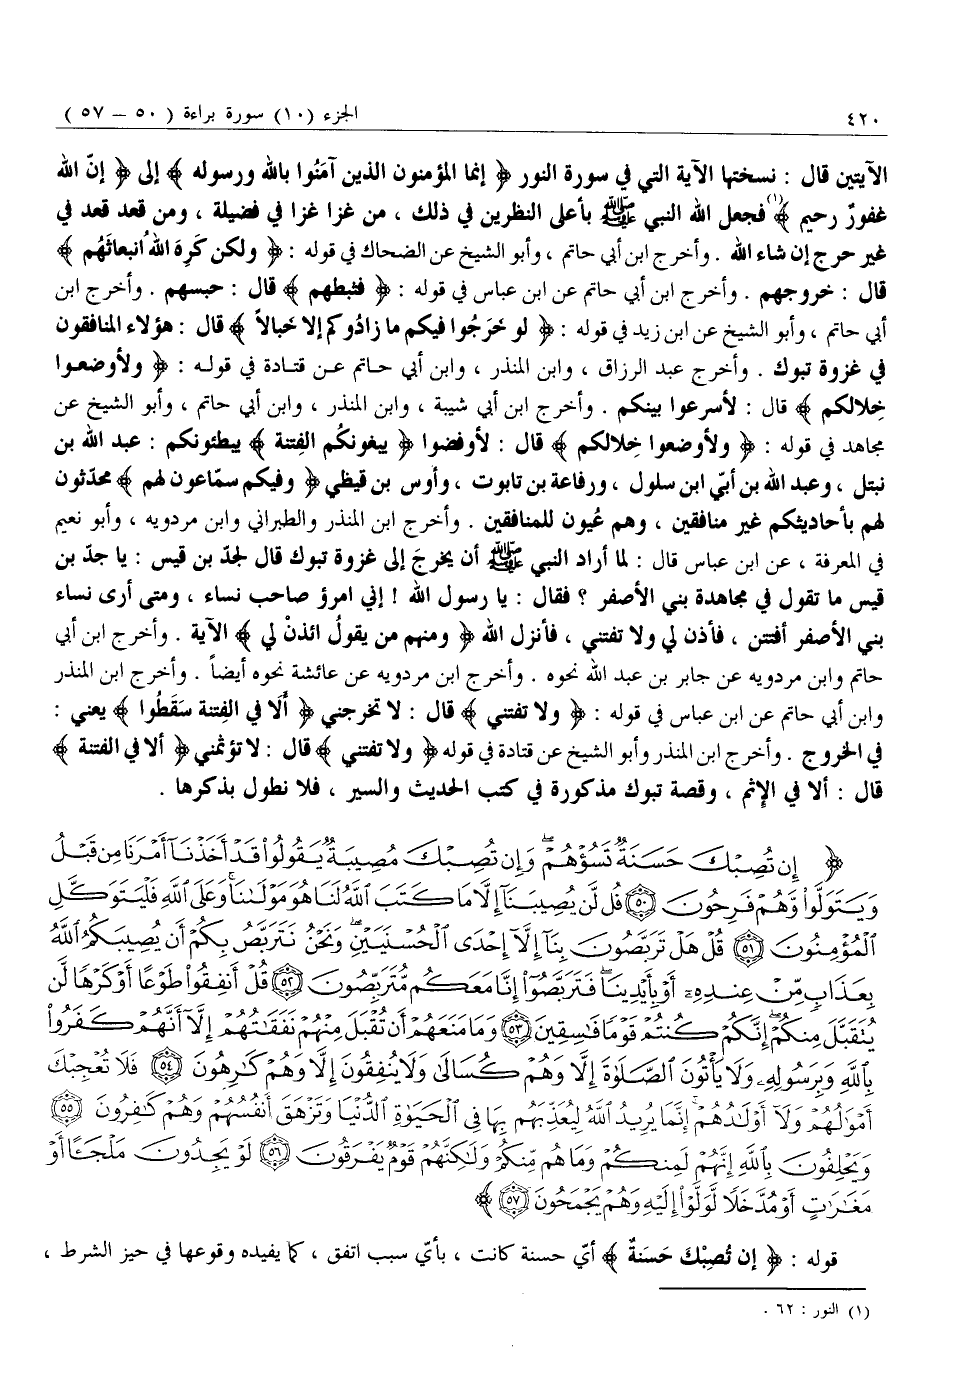 ٤٢٠ الجزء (١٠) سورة براءة ( ٥٠ – ٥٧ )
الآيتين قال : نسختها الآية التي في سورة النور ﴿ إنما المؤمنون الذين آمَنُوا بالله ورسوله ﴾ إلى ﴿ إنّ الله
غفورٌ رحيم ﴾(١) فجعل الله النبي ﷺ بأعلى النظرين في ذلك ، من غزا غزا في فضيلة ، ومن قعد قعد في
غير حرج إن شاء الله . وأخرج ابن أبي حاتم ، وأبو الشيخ عن الضحاك في قوله : ﴿ ولكن كَرِهَ اللهُ انبعاثَهُم ﴾
قال : خروجهم . وأخرج ابن أبي حاتم عن ابن عباس في قوله : ﴿ فثبطهم ﴾ قال : حبسهم . وأخرج ابن
أبي حاتم ، وأبو الشيخ عن ابن زيد في قوله : ﴿ لو خَرَجُوا فيكم ما زادُوكم إلا خبالاً ﴾ قال : هؤلاء المنافقون
في غزوة تبوك . وأخرج عبد الرزاق ، وابن المنذر ، وابن أبي حاتم عن قتادة في قوله : ﴿ ولأوضعوا
خِلالكم ﴾ قال : لأسرعوا بينكم . وأخرج ابن أبي شيبة ، وابن المنذر ، وابن أبي حاتم ، وأبو الشيخ عن
مجاهد في قوله : ﴿ ولأوضعوا خِلالكم ﴾ قال : لأوفضوا ﴿ يبغونكُم الفتنة ﴾ يبطئونكم : عبد الله بن
نبتل ، وعبد الله بن أبيّ ابن سلول ، ورفاعة بن تابوت ، وأوس بن قيظي ﴿ وفيكم سمّاعون لهم ﴾ محدّثون
لهم بأحاديثكم غير منافقين ، وهم عُيون للمنافقين . وأخرج ابن المنذر والطبراني وابن مردويه ، وأبو نعيم
في المعرفة ، عن ابن عباس قال : لما أراد النبي ﷺ أن يخرجَ إلى غزوة تبوك قال لجدّ بن قيس : يا جدّ بن
قيس ما تقول في مجاهدة بني الأصفر ؟ فقال : يا رسول الله ! إني امرؤ صاحب نساء ، ومتى أرى نساء
بني الأصفر أفتتن ، فأذن لي ولا تفتني ، فأنزل الله ﴿ ومنهم من يقولُ ائذنْ لي ﴾ الآية . وأخرج ابن أبي
حاتم وابن مردويه عن جابر بن عبد الله نحوه . وأخرج ابن مردويه عن عائشة نحوه أيضاً . وأخرج ابن المنذر
وابن أبي حاتم عن ابن عباس في قوله : ﴿ ولا تفتني ﴾ قال : لا تخرجني ﴿ أَلَا في الفتنة سَقَطُوا ﴾ يعني :
في الخروج . وأخرج ابن المنذر وأبو الشيخ عن قتادة في قوله ﴿ ولا تفتني ﴾ قال : لا تؤثمني ﴿ ألا في الفتنة ﴾
قال : ألا في الإثم ، وقصة تبوك مذكورة في كتب الحديث والسير ، فلا نطول بذكرها .
﴿ إِن تُصِبْكَ حَسَنَةٌ تَسُؤْهُمْ ۖ وَإِن تُصِبْكَ مُصِيبَةٌ يَقُولُوا۟ قَدْ أَخَذْنَآ أَمْرَنَا مِن قَبْلُ
وَيَتَوَلَّوا۟ وَّهُمْ فَرِحُونَ ﴿٥٠﴾ قُل لَّن يُصِيبَنَآ إِلَّا مَا كَتَبَ ٱللَّهُ لَنَا هُوَ مَوْلَىٰنَا ۚ وَعَلَى ٱللَّهِ فَلْيَتَوَكَّلِ
ٱلْمُؤْمِنُونَ ﴿٥١﴾ قُلْ هَلْ تَرَبَّصُونَ بِنَآ إِلَّآ إِحْدَى ٱلْحُسْنَيَيْنِ ۖ وَنَحْنُ نَتَرَبَّصُ بِكُمْ أَن يُصِيبَكُمُ ٱللَّهُ
بِعَذَابٍ مِّنْ عِندِهِۦٓ أَوْ بِأَيْدِينَا ۖ فَتَرَبَّصُوٓا۟ إِنَّا مَعَكُم مُّتَرَبِّصُونَ ﴿٥٢﴾ قُلْ أَنفِقُوا۟ طَوْعًا أَوْ كَرْهًا لَّن
يُتَقَبَّلَ مِنكُمْ ۖ إِنَّكُمْ كُنتُمْ قَوْمًا فَٰسِقِينَ ﴿٥٣﴾ وَمَا مَنَعَهُمْ أَن تُقْبَلَ مِنْهُمْ نَفَقَٰتُهُمْ إِلَّآ أَنَّهُمْ كَفَرُوا۟
بِٱللَّهِ وَبِرَسُولِهِۦ وَلَا يَأْتُونَ ٱلصَّلَوٰةَ إِلَّا وَهُمْ كُسَالَىٰ وَلَا يُنفِقُونَ إِلَّا وَهُمْ كَٰرِهُونَ ﴿٥٤﴾ فَلَا تُعْجِبْكَ
أَمْوَٰلُهُمْ وَلَآ أَوْلَٰدُهُمْ ۚ إِنَّمَا يُرِيدُ ٱللَّهُ لِيُعَذِّبَهُم بِهَا فِى ٱلْحَيَوٰةِ ٱلدُّنْيَا وَتَزْهَقَ أَنفُسُهُمْ وَهُمْ كَٰفِرُونَ ﴿٥٥﴾
وَيَحْلِفُونَ بِٱللَّهِ إِنَّهُمْ لَمِنكُمْ وَمَا هُم مِّنكُمْ وَلَٰكِنَّهُمْ قَوْمٌ يَفْرَقُونَ ﴿٥٦﴾ لَوْ يَجِدُونَ مَلْجَـًٔا أَوْ
مَغَٰرَٰتٍ أَوْ مُدَّخَلًا لَّوَلَّوْا۟ إِلَيْهِ وَهُمْ يَجْمَحُونَ ﴿٥٧﴾ ﴾
قوله : ﴿ إن تُصِبْكَ حَسَنةٌ ﴾ أيّ حسنة كانت ، بأيّ سبب اتفق ، كما يفيده وقوعها في حيز الشرط ،
(١) النور : ٦٢ .